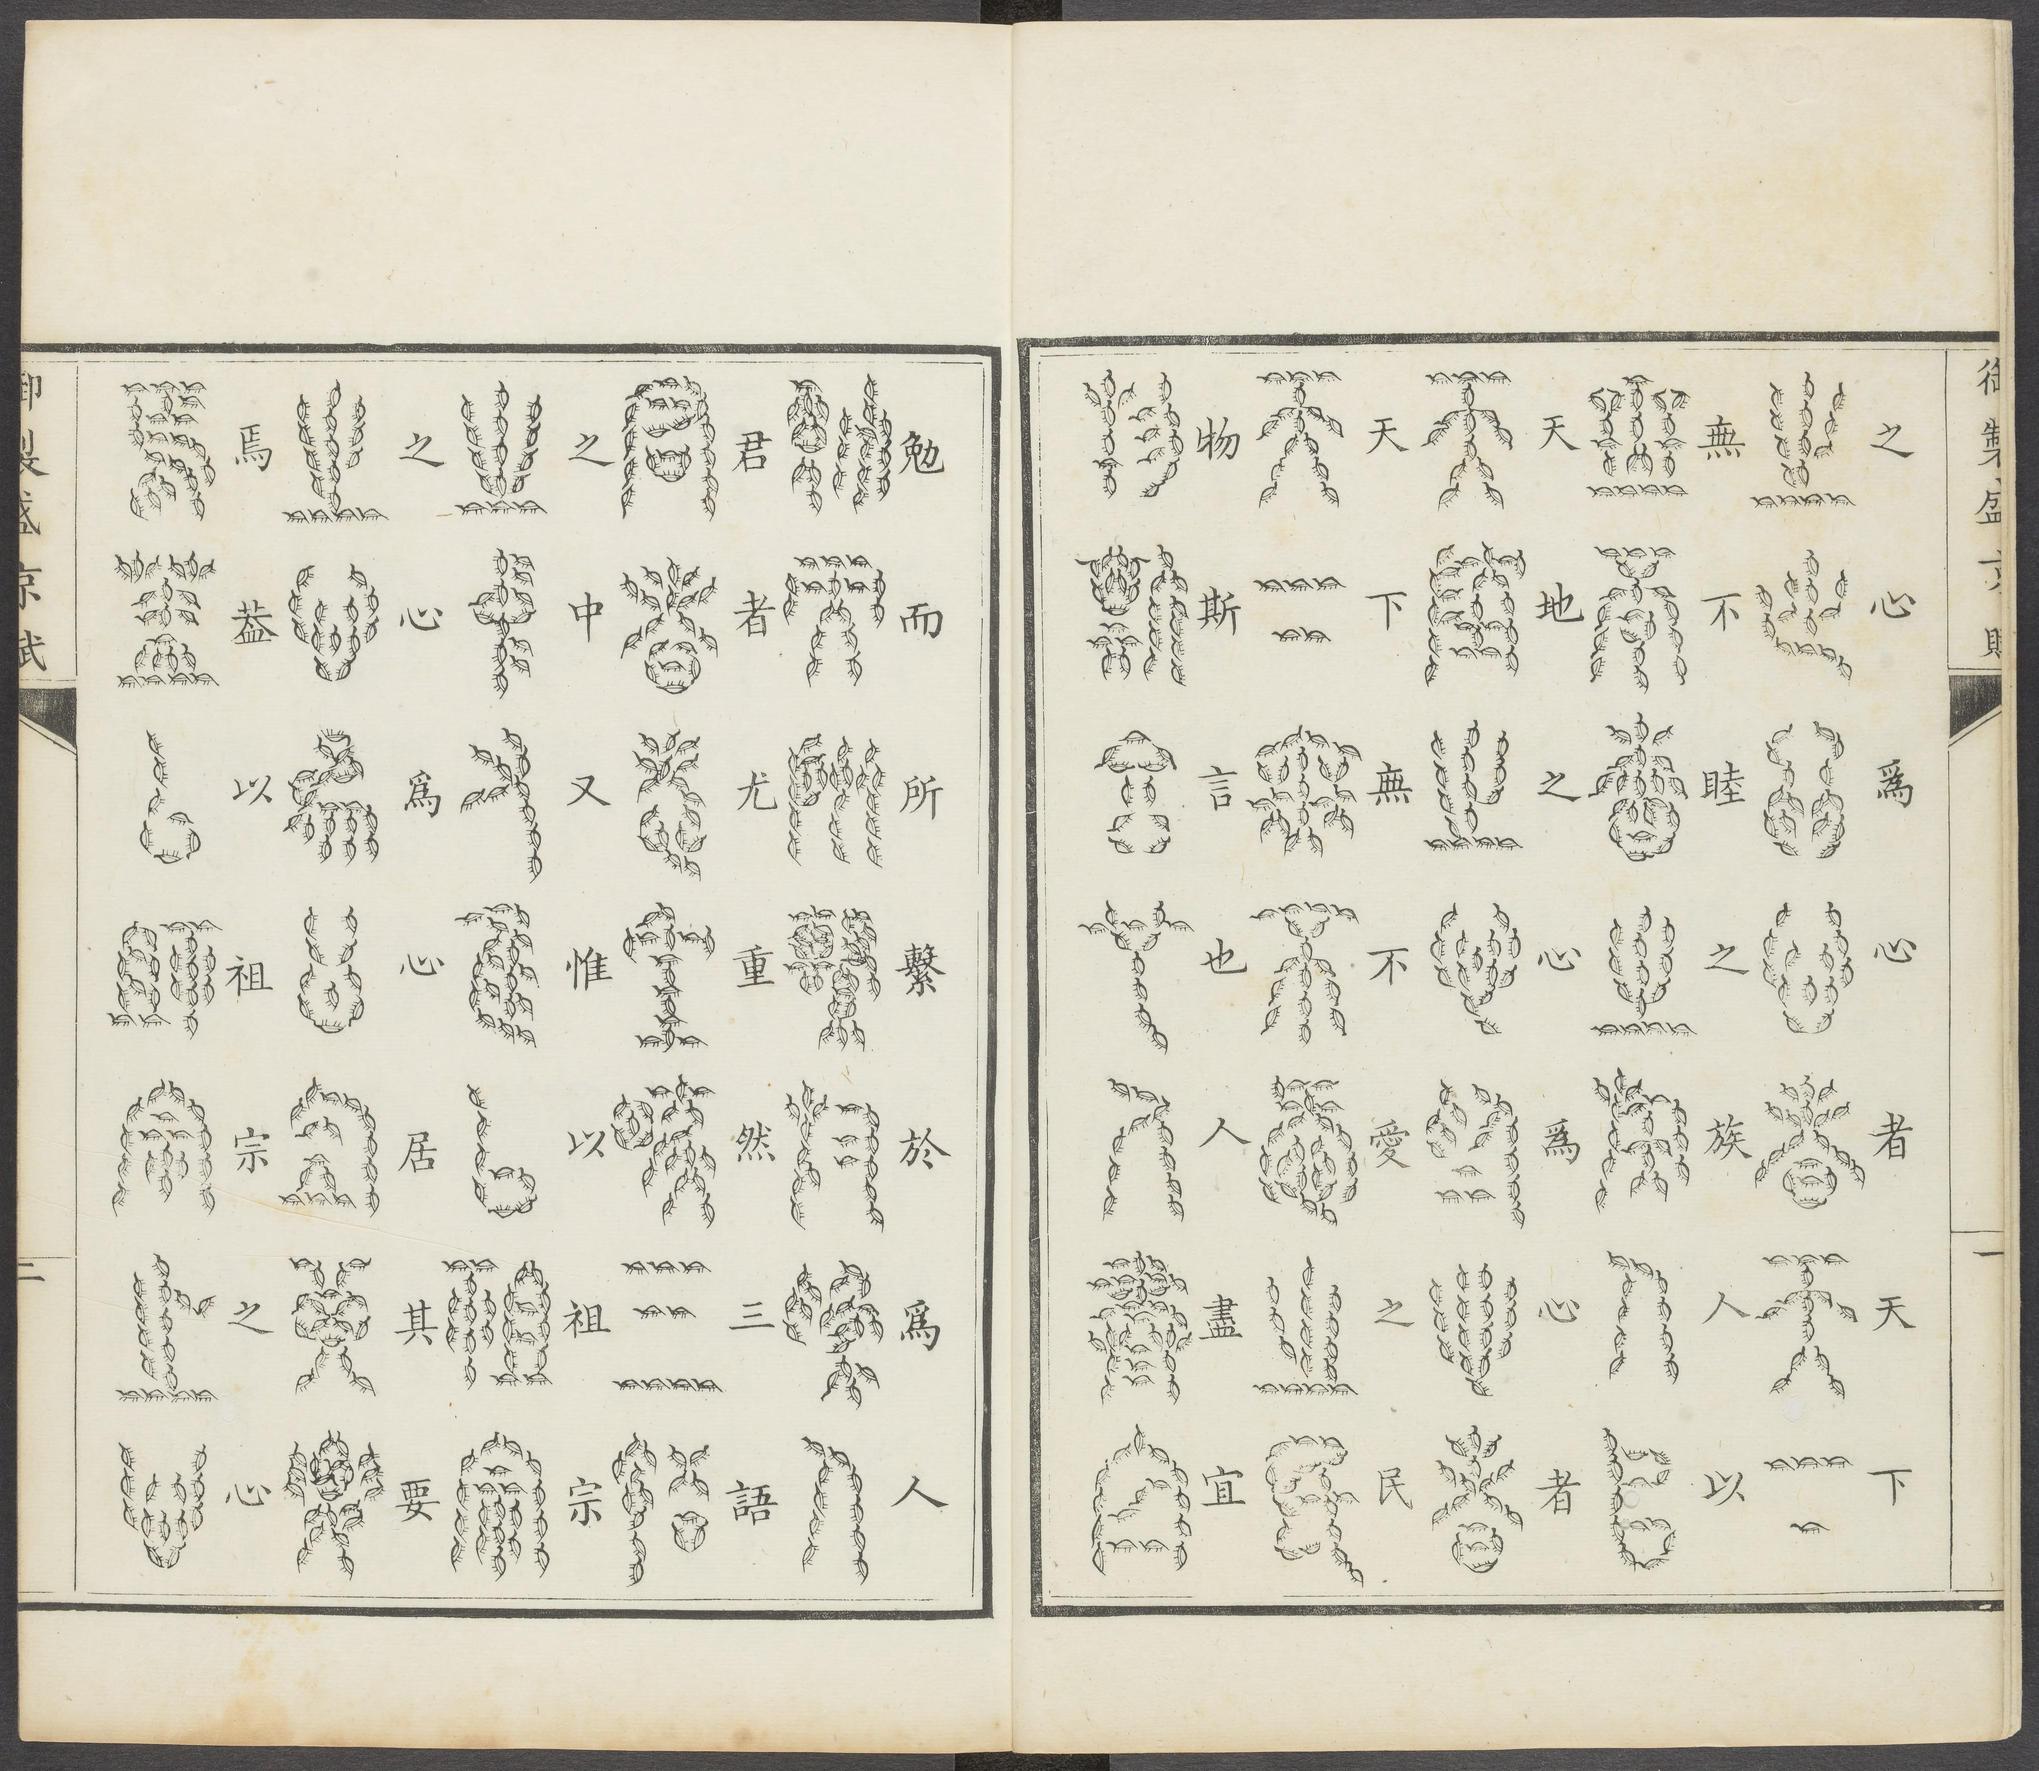 御製盛京賦 一
之心爲心者天下
無不睦之族人以
天地之心爲心者
天下無不愛之民
物斯言也人盡宜
勉而所繫於爲人
君者尤重然三語
之中又惟以祖宗
之心爲心居其要
焉葢以祖宗之心
御製盛京賦 二